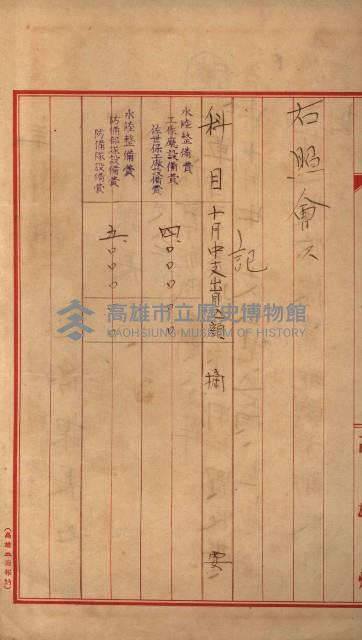 右照會ス
記
科目 十月中支出見込額 摘要
水陸整備費
工作廳設備費
佐世保工廠設備費
四.〇〇〇〇
水陸整備費
防備部隊設備費
防備隊設備費
五.〇〇〇〇
高雄市立歷史博物館
KAOHSIUNG MUSEUM OF HISTORY